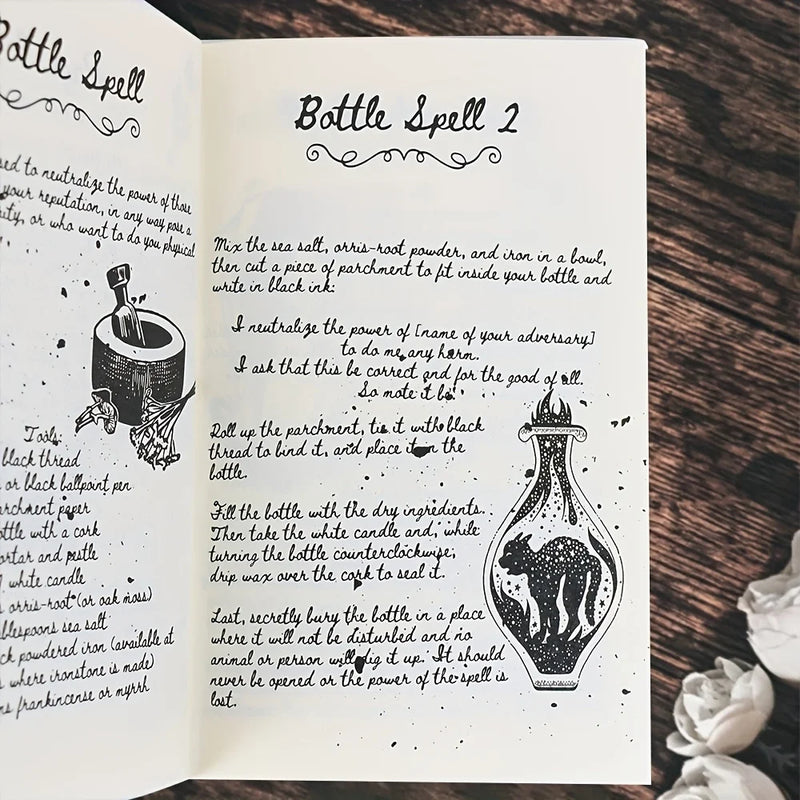 Bottle Spell
to neutralize the power of those
your reputation, in any way pose a
or who want to do you physical
Tools:
black thread
or black ballpoint pen
paper
with a cork
and pestle
white candle
orris-root (or oak moss)
sea salt
powdered iron (available at
where ironstone is made)
frankincense or myrrh
Bottle Spell 2
Mix the sea salt, orris-root powder, and iron in a bowl,
then cut a piece of parchment to fit inside your bottle and
write in black ink:
I neutralize the power of [name of your adversary]
to do me any harm.
I ask that this be correct and for the good of all.
So mote it be.
Roll up the parchment, tie it with black
thread to bind it, and place it on the
bottle.
Fill the bottle with the dry ingredients.
Then take the white candle and, while
turning the bottle counterclockwise,
drip wax over the cork to seal it.
Last, secretly bury the bottle in a place
where it will not be disturbed and no
animal or person will dig it up. It should
never be opened or the power of the spell is
lost.